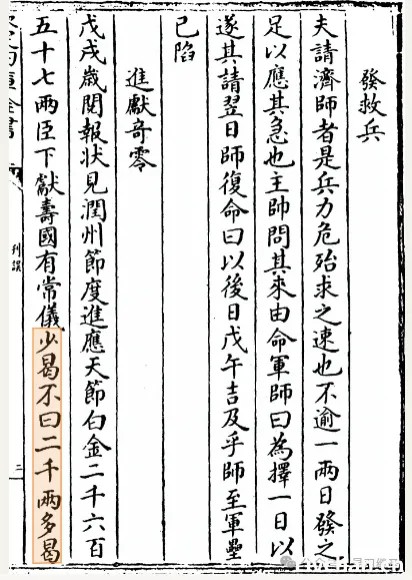 發救兵
夫請濟師者是兵力危殆求之速也不逾一兩日發之
足以應其急也主帥問其來由命軍師曰為擇一日以
遂其請翌日師復命曰以後日戊午吉及乎師至軍壘
已陷
進獻奇零
戊戌歲閱報狀見潤州節度進應天節白金二千六百
五十七兩臣下獻壽國有常儀少曷不曰二千兩多曷
全書
刊誤